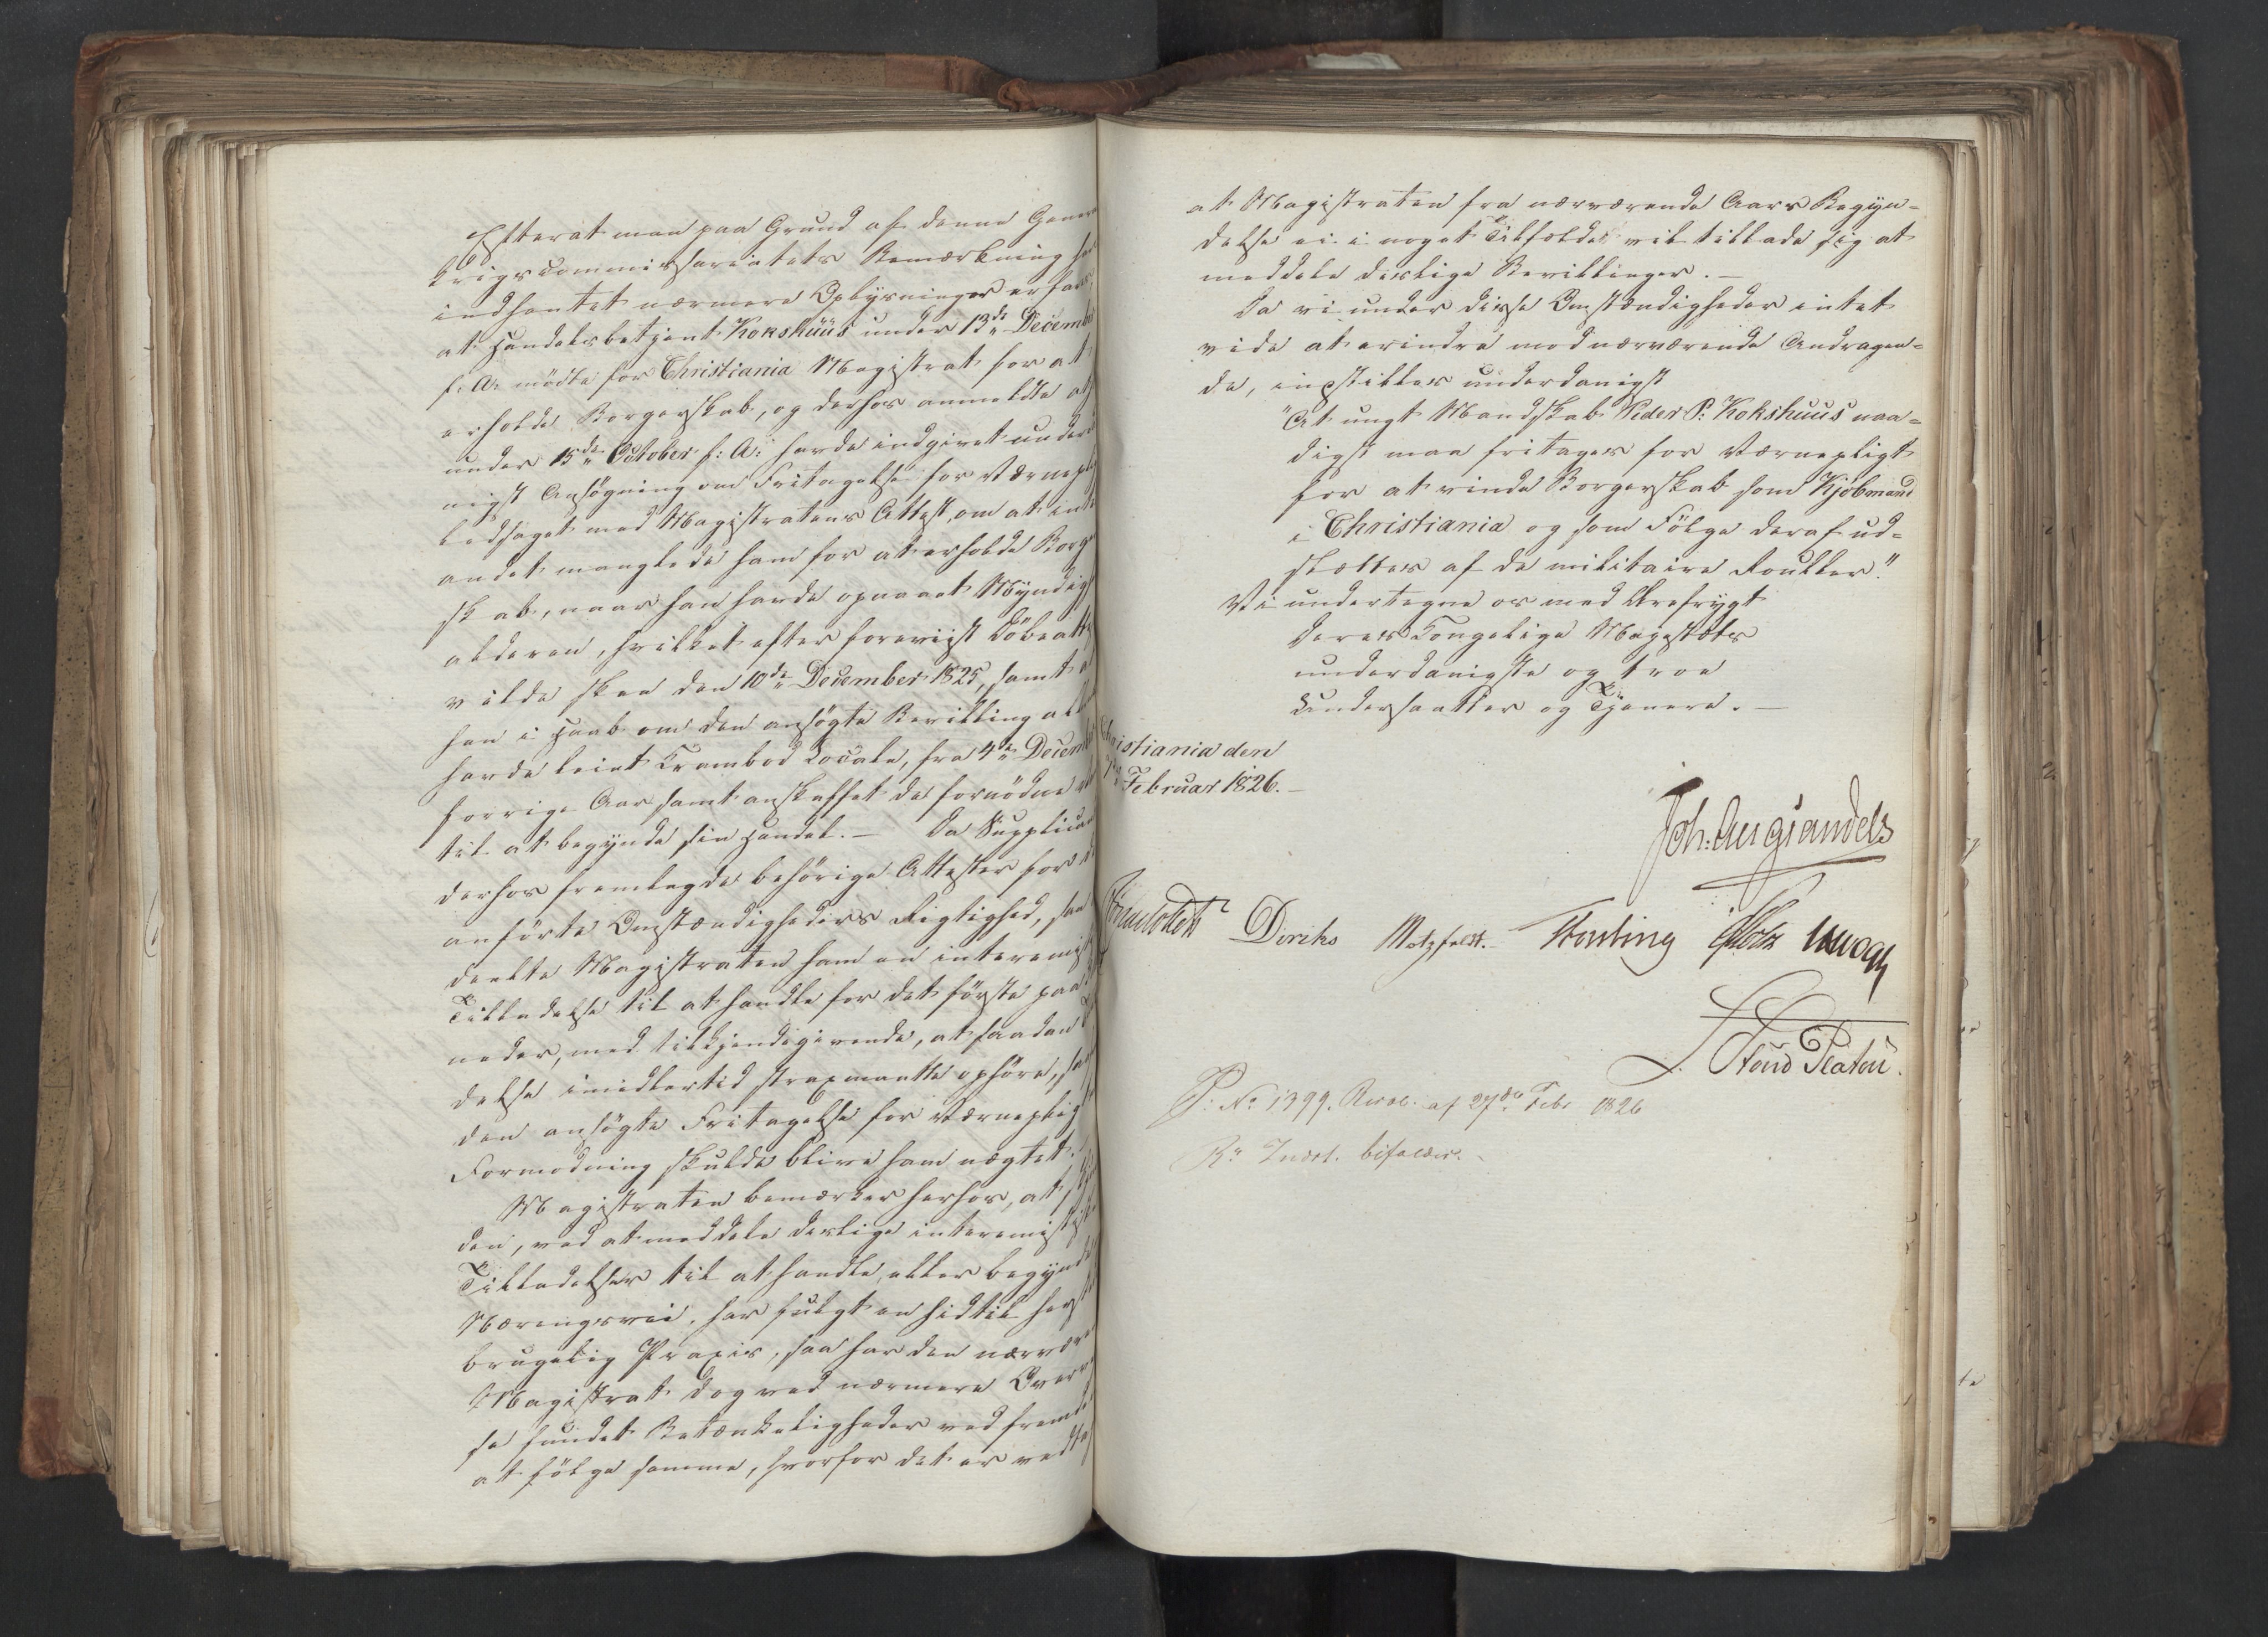 Efterat man paa Grund af denne General
krigscommissariatets Bemærkning har
indhentet nærmere Oplysninger erfares,
at Handelsbetjent Kokshuus under 13de December
f: A: mödte for Christiania Magistrat for at
erholde Borgerskab, og derhos anmeldte at
under 15de October f: A: havde indgivet underda
nigst Ansögning om Fritagelse for Værnepligt
ledsaget med Magistratens Attest, om at intet
andet manglede ham for at erholde Borger
skab, naar han havde opnaaet Myndigheds
alderen, hvilket efter foreviist Döbeattest
vilde skee den 10de December 1825, samt at
han i Haab om den ansögte Bevilling allerede
havde leiet Krambod Locale, fra 4de December
forrige Aar samt anskaffet de fornödne
til at begynde sin Handel. — Da Supplicanten
derhos fremlagde behörige Attester for de
anförte Omstændigheders Rigtighed, saa
deelte Magistraten ham en interimistisk
Tilladelse til at handle for det förste paa
neder, med tilkjendegivende, at saadan
delse imidlertid strax maatte ophöre, saafremt
den ansögte Fritagelse for Værnepligt
Formodning skulde blive ham nægtet.
Magistraten bemærker herhos, at
den, ved at meddele deslige interimistiske
Tilladelser til at handle, eller begynde
Næringsvei, har fulgt en hidtil
brugelig Praxis, saa har den nærværende
Magistrat dog ved nærmere Overveielse
se fundet Betænkeligheder ved fremdeles
at fölge samme, hvorfor det er vedtaget
at Magistraten fra nærværende Aars Begyn=
delse ei i noget Tilfælde vil tillade sig at
meddele deslige Bevillinger. —
Da vi under disse Omstændigheder intet
vide at erindre mod nærværende Andragen=
de, indstilles underdanigst
"At ungt Mandskab Peder P: Kokshuus naa=
digst maa fritages for Værnepligt
for at vinde Borgerskab som Kjöbmand
i Christiania og som Fölge deraf ud=
slettes af de militaire Rouller."
Vi undertegne os med Ærefrygt
Deres Kongelige Majestæts
underdanigste og troe
Undersaatter og Tjenere. —
Christiania den
7de Februar 1826. —
Joh: Aug: Sandels
Diriks Motzfeldt. Fasting
L. Stoud Platou.
P. No 1399. Resol. af 27de Febr 1826
Rs Indst. bifaldes.